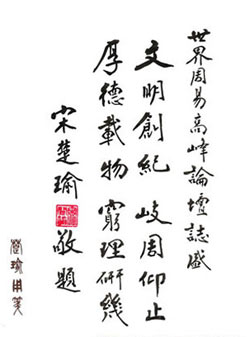 世界周易高峰論壇誌盛
文明創紀 岐周仰止
厚德載物 窮理研幾
宋楚瑜敬題